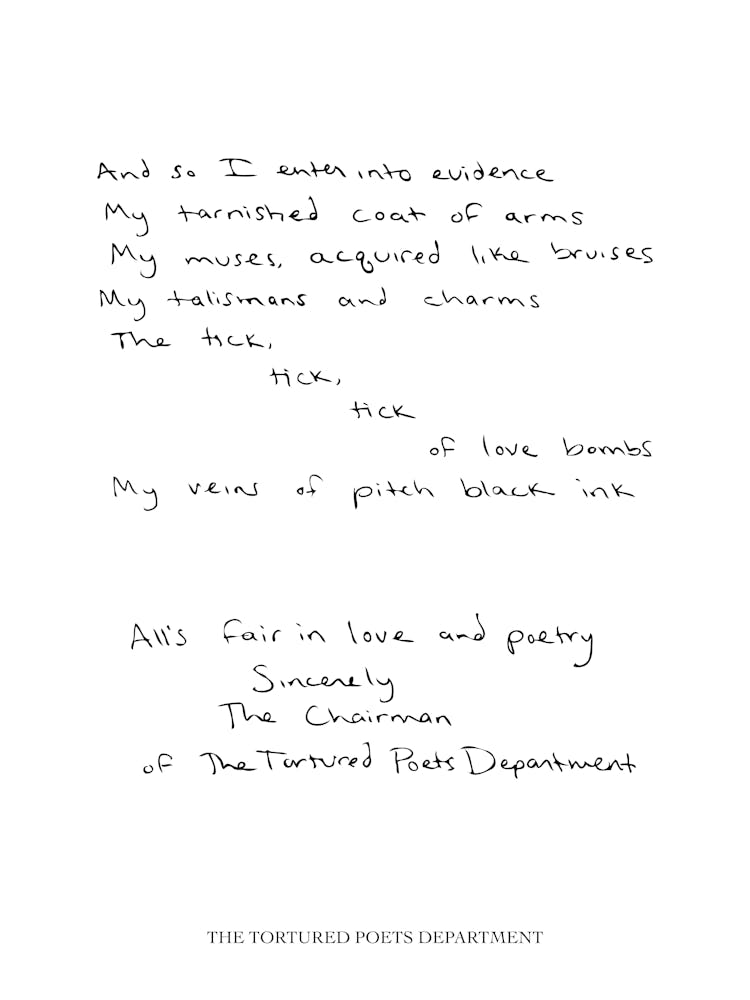 And so I enter into evidence
My tarnished coat of arms
My muses, acquired like bruises
My talismans and charms
The tick,
tick,
tick
of love bombs
My veins of pitch black ink
All's fair in love and poetry
Sincerely
The Chairman
of The Tortured Poets Department
THE TORTURED POETS DEPARTMENT